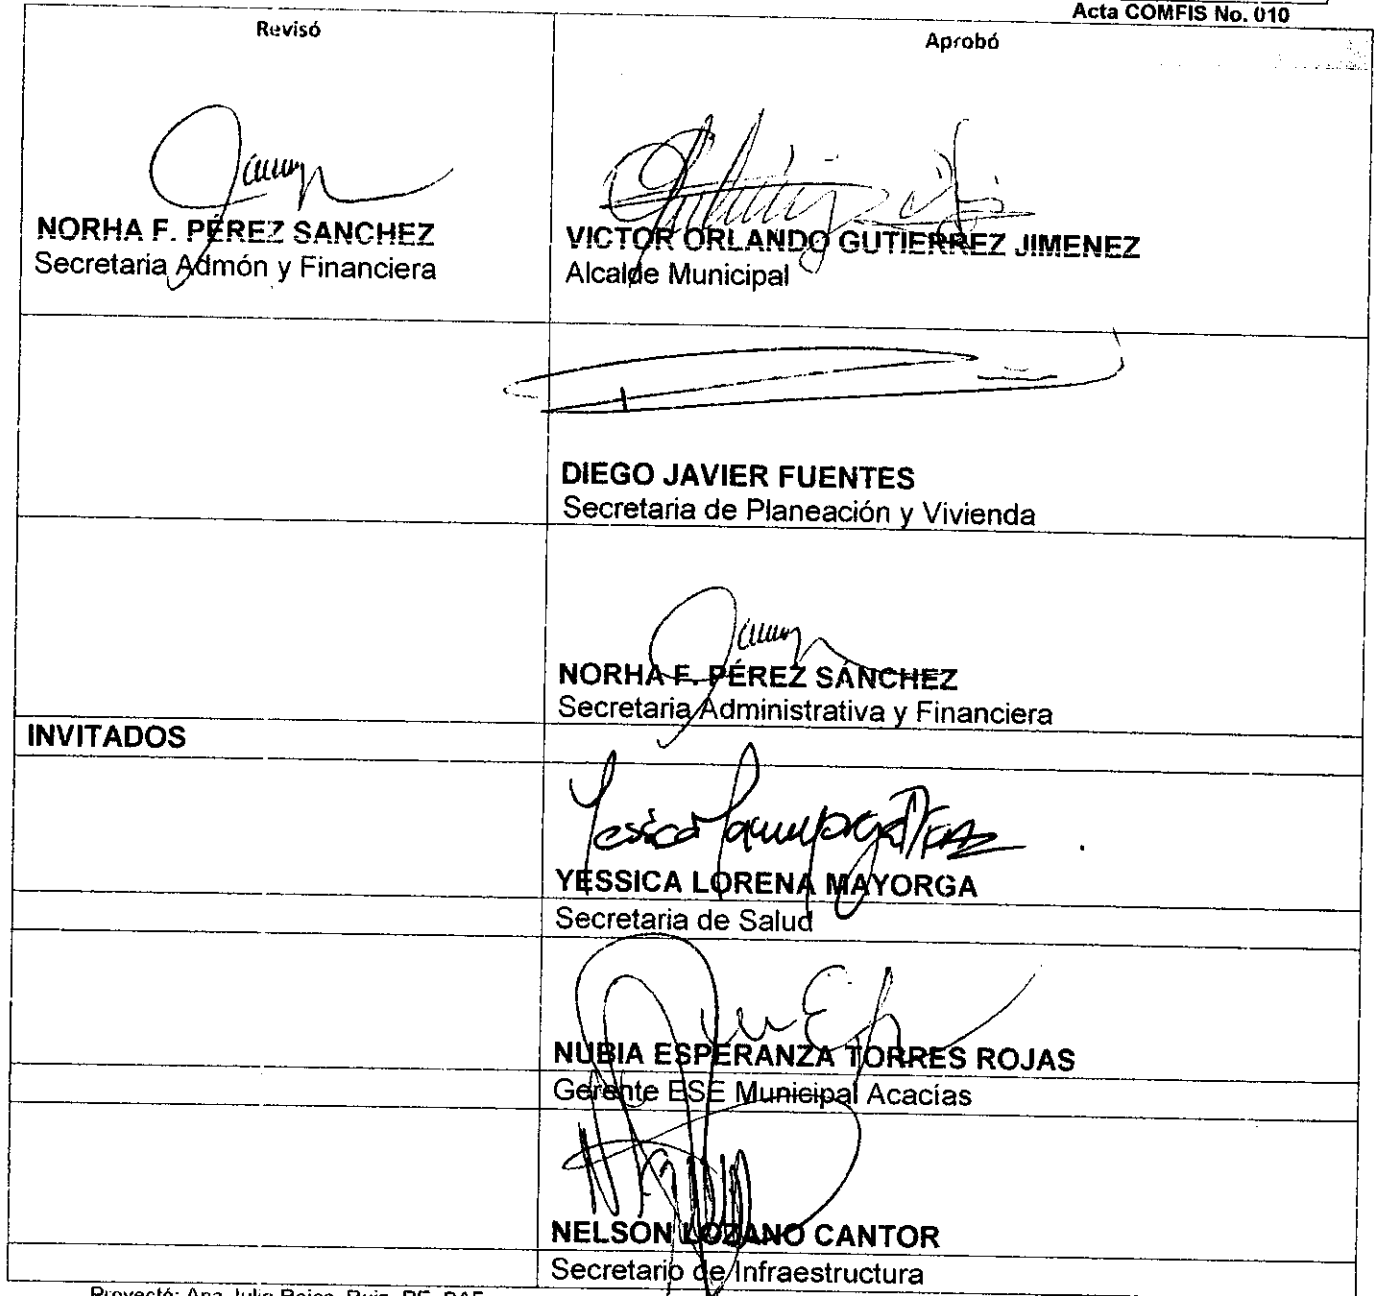 Acta COMFIS No. 010
Revisó
Aprobó
NORHA F. PÉREZ SANCHEZ
Secretaria Admón y Financiera
VICTOR ORLANDO GUTIERREZ JIMENEZ
Alcalde Municipal
DIEGO JAVIER FUENTES
Secretaria de Planeación y Vivienda
NORHA F. PÉREZ SÁNCHEZ
Secretaria Administrativa y Financiera
INVITADOS
YESSICA LORENA MAYORGA
Secretaria de Salud
NUBIA ESPERANZA TORRES ROJAS
Gerente ESE Municipal Acacías
NELSON LOZANO CANTOR
Secretario de Infraestructura
Proyectó: Ana Julia Rojas